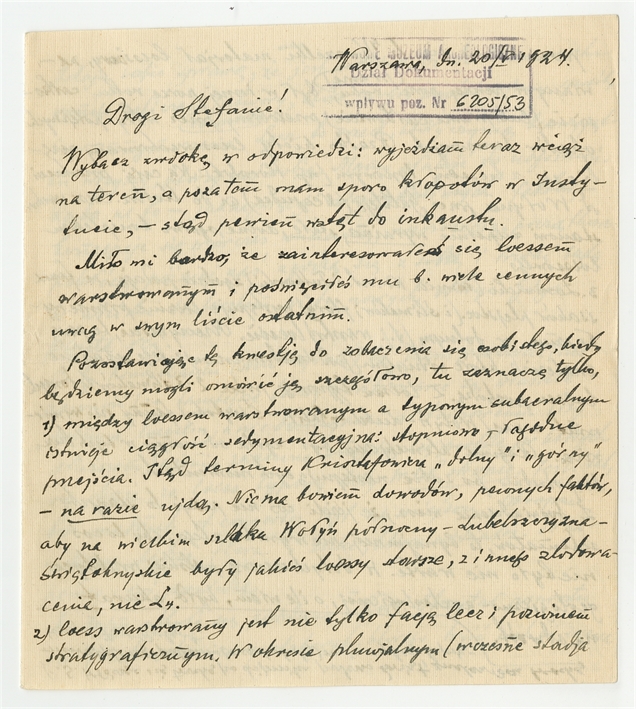 Warszawa, dn. 20/V 1924.
MUZEUM ARCHEOLOGICZNE
Dział Dokumentacji
wpływu poz. Nr 6205/53
Drogi Stefanie!
Wybacz zwłokę w odpowiedzi: wyjeżdżam teraz wciąż
na teren, a pozatem mam sporo kłopotów w Insty-
tucie, – stąd pewien wstęt do inkaustu.
Miło mi bardzo, że zainteresowałeś się loessem
warstwowanym i poświęciłeś mu b. wiele cennych
uwag w swym liście ostatnim.
Pozostawiając tą kwestję do zobaczenia się osobistego, kiedy
będziemy mogli omówić ją szczegółowo, tu zaznaczę tylko,
1) między loessem warstwowanym a typowym subaeralnym
istnieje ciągłość sedymentacyjna: stopniowe, łagodne
przejścia. Stąd terminy Krisztafowicza „dolny" i „górny"
– na razie ujdą. Niema bowiem dowodów, pewnych faktów,
aby na wielkim szlaku Wołyń północny – Lubelszczyzna –
Świętokrzyskie były jakieś loessy starsze, z innego zlodowa-
cenia, nie L4.
2) loess warstwowany jest nie tylko facją lecz i poziomem
stratygraficznym. W okresie pluwjalnym (wczesne stadja